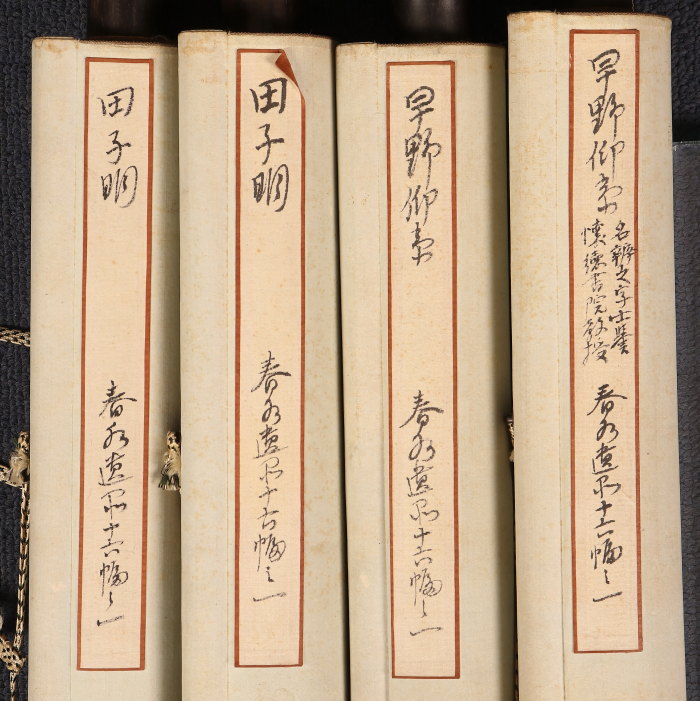 早野仰斎
名辨之字士譽
懐徳書院教授
春水遺品十六幅之一
早野仰斎
春水遺品十六幅之一
田子明
春水遺品十六幅之一
田子明
春水遺品十六幅之一